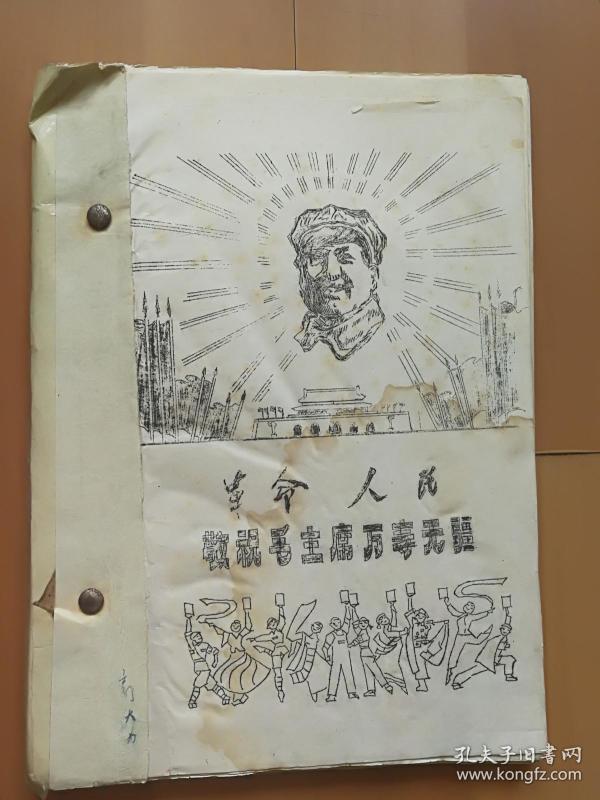 革命人民
敬祝毛主席万寿无疆
大力
孔夫子旧书网
www.kongfz.com